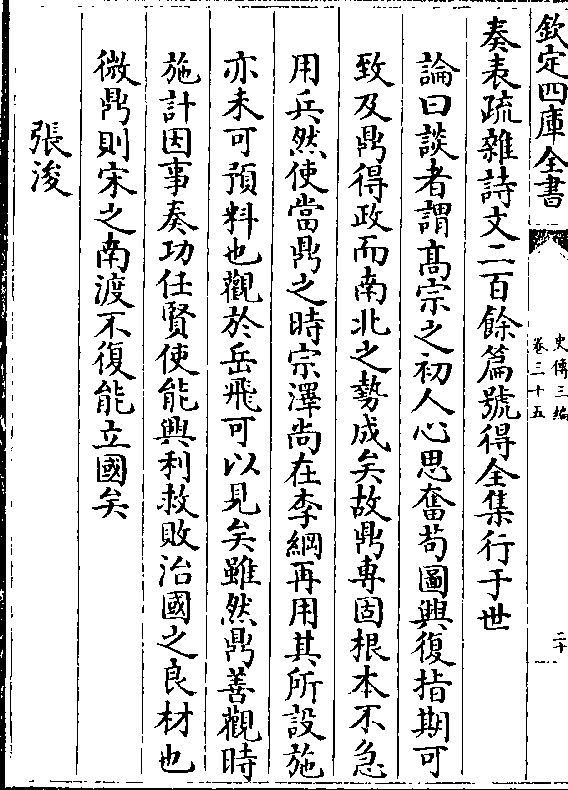 欽定四庫全書
史傳三編
卷三十五
二十
奏表疏雜詩文二百餘篇號得全集行于世
論曰談者謂髙宗之初人心思奮苟圖興復指期可
致及鼎得政而南北之勢成矣故鼎專固根本不急
用兵然使當鼎之時宗澤尚在李綱再用其所設施
亦未可預料也觀於岳飛可以見矣雖然鼎善觀時
施計因事奏功任賢使能興利救敗治國之良材也
微鼎則宋之南渡不復能立國矣
張浚